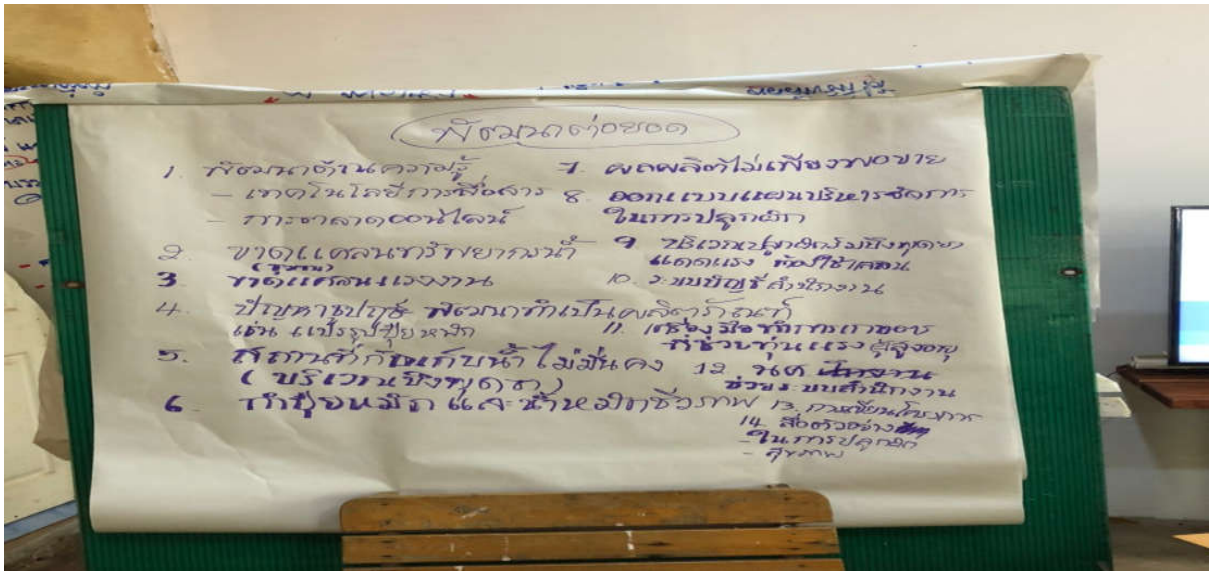 พัฒนาต่อยอด
1. พัฒนาด้านความรู้
- เทคโนโลยีการสื่อสาร
- การตลาดออนไลน์
2. ขาดแคลนทรัพยากรน้ำ
(ชุมชน)
3 ขาดแคลนแรงงาน
4. ปัญหา พัฒนาทำเป็นผลิตภัณฑ์
เช่น แปรรูปปุ๋ยหมัก
5. สถานที่กักเก็บน้ำไม่มั่นคง
(บริเวณบึง)
6. ทำปุ๋ยหมัก และน้ำหมักชีวภาพ
7. ผลผลิตไม่เพียงพอขาย
8. ออกแบบแผนบริหารจัดการ
ในการปลูกผัก
9 บริเวณปลูกผักริมบึง
แดดแรง ต้องใช้สแลน
10. ระบบบัญชีสำนักงาน
11. เครื่องมือทำการเกษตร
ที่ช่วยทุ่นแรง ผู้สูงอายุ
12 นศ
ช่วยระบบสำนักงาน
13. การเขียนโครงการ
14. สื่อตัวอย่าง
- ในการปลูกผัก
- สุขภาพ